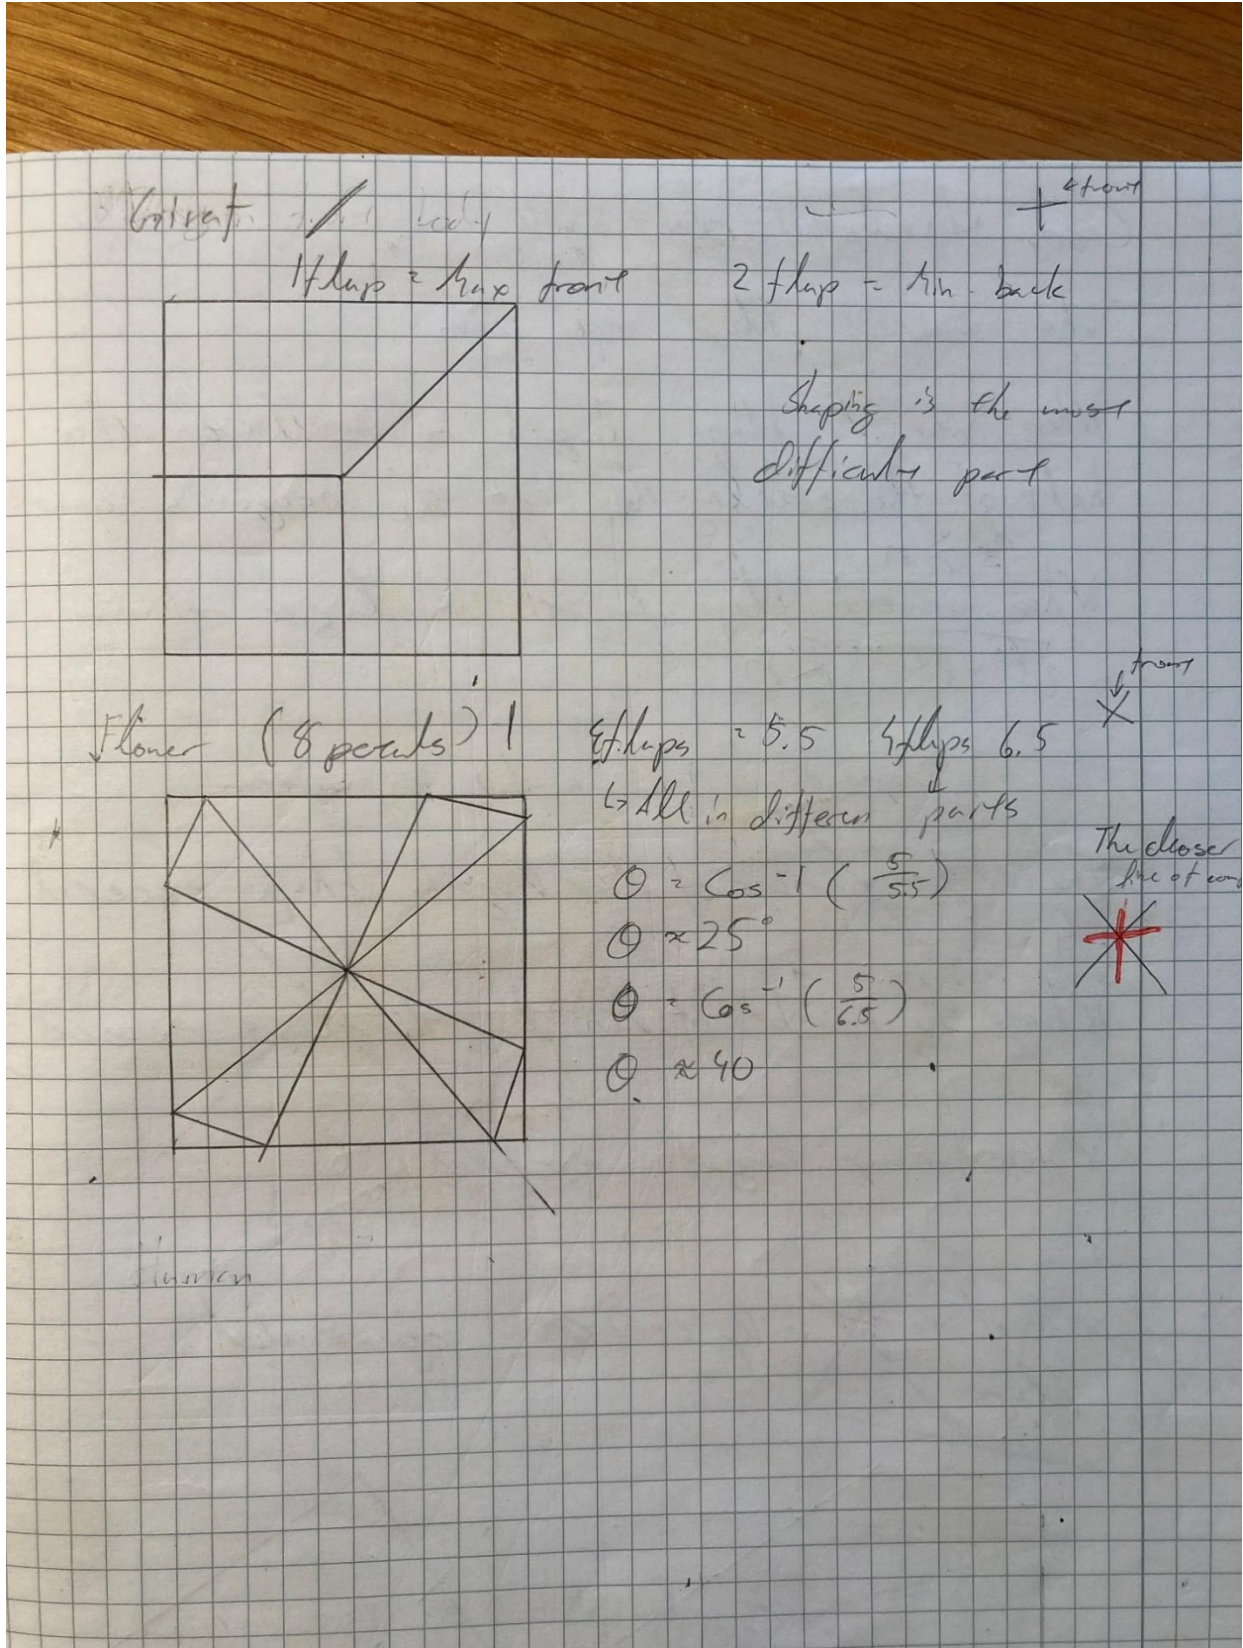 1 flap = Max front
2 flap = Min back
front
Shaping is the most
difficult part
front
Flower (8 petals) 1
4 flaps = 5.5 4 flaps 6.5
↳ All in different parts
θ = Cos⁻¹ (5/5.5)
θ ≈ 25°
θ = Cos⁻¹ (5/6.5)
θ ≈ 40
The closer
line of